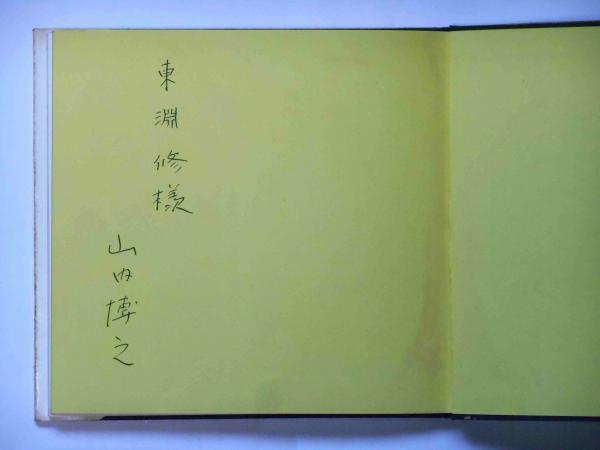 東淵修様
山内博之